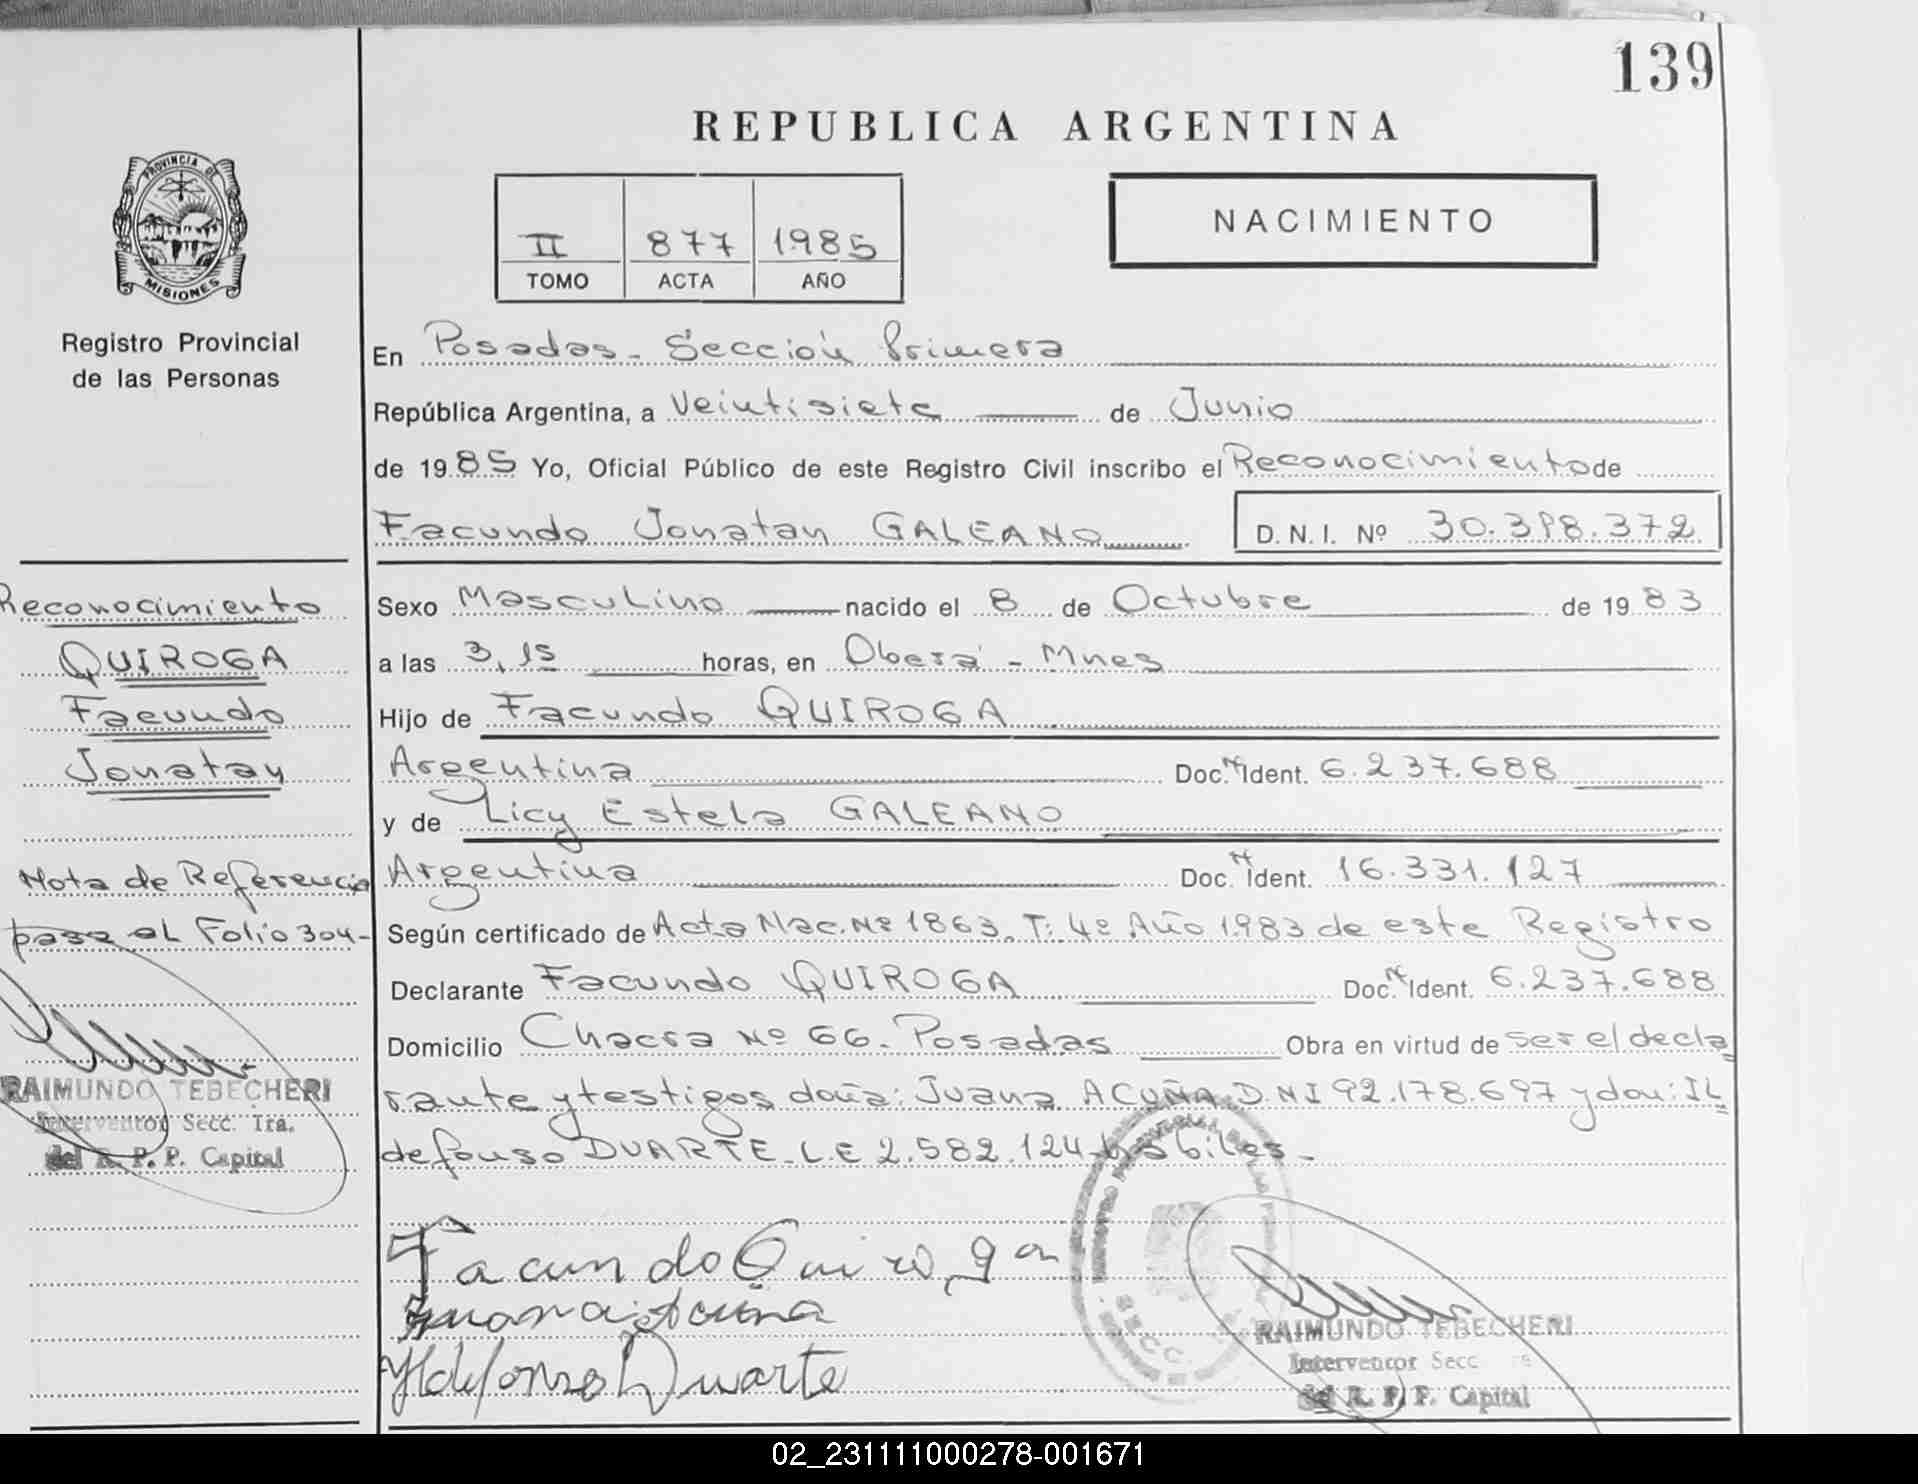 139
REPUBLICA ARGENTINA
PROVINCIA DE
MISIONES
Registro Provincial
de las Personas
II 877 1985
TOMO ACTA AÑO
NACIMIENTO
En Posadas - Sección Primera
República Argentina, a Veintisiete de Junio
de 1985 Yo, Oficial Público de este Registro Civil inscribo el Reconocimiento de
Facundo Jonatan GALEANO
D. N. I. Nº 30.398.372
Reconocimiento
QUIROGA
Facundo
Jonatan
Nota de Referencia
pasa al Folio 304-
RAIMUNDO TEBECHERI
Interventor Secc. 1ra.
del R. P. P. Capital
Sexo Masculino nacido el 8 de Octubre de 1983
a las 3,15 horas, en Oberá - Mnes
Hijo de Facundo QUIROGA
Argentina Doc. Nº Ident. 6.237.688
y de Licy Estela GALEANO
Argentina Doc. Nº Ident. 16.331.127
Según certificado de Acta Nac. Nº 1863. T: 4º Año 1983 de este Registro
Declarante Facundo QUIROGA Doc. Nº Ident. 6.237.688
Domicilio Chacra Nº 66. Posadas Obra en virtud de ser el decla
rante y testigos doña: Juana ACUÑA D.N.I 92.178.697 y don: IL
defonso DUARTE - L E 2.582.124 hábiles -
Facundo Quiroga
Juana Acuña
Yldefonso Duarte
SECC.
RAIMUNDO TEBECHERI
Interventor Secc
del R. P. P. Capital
02_231111000278-001671